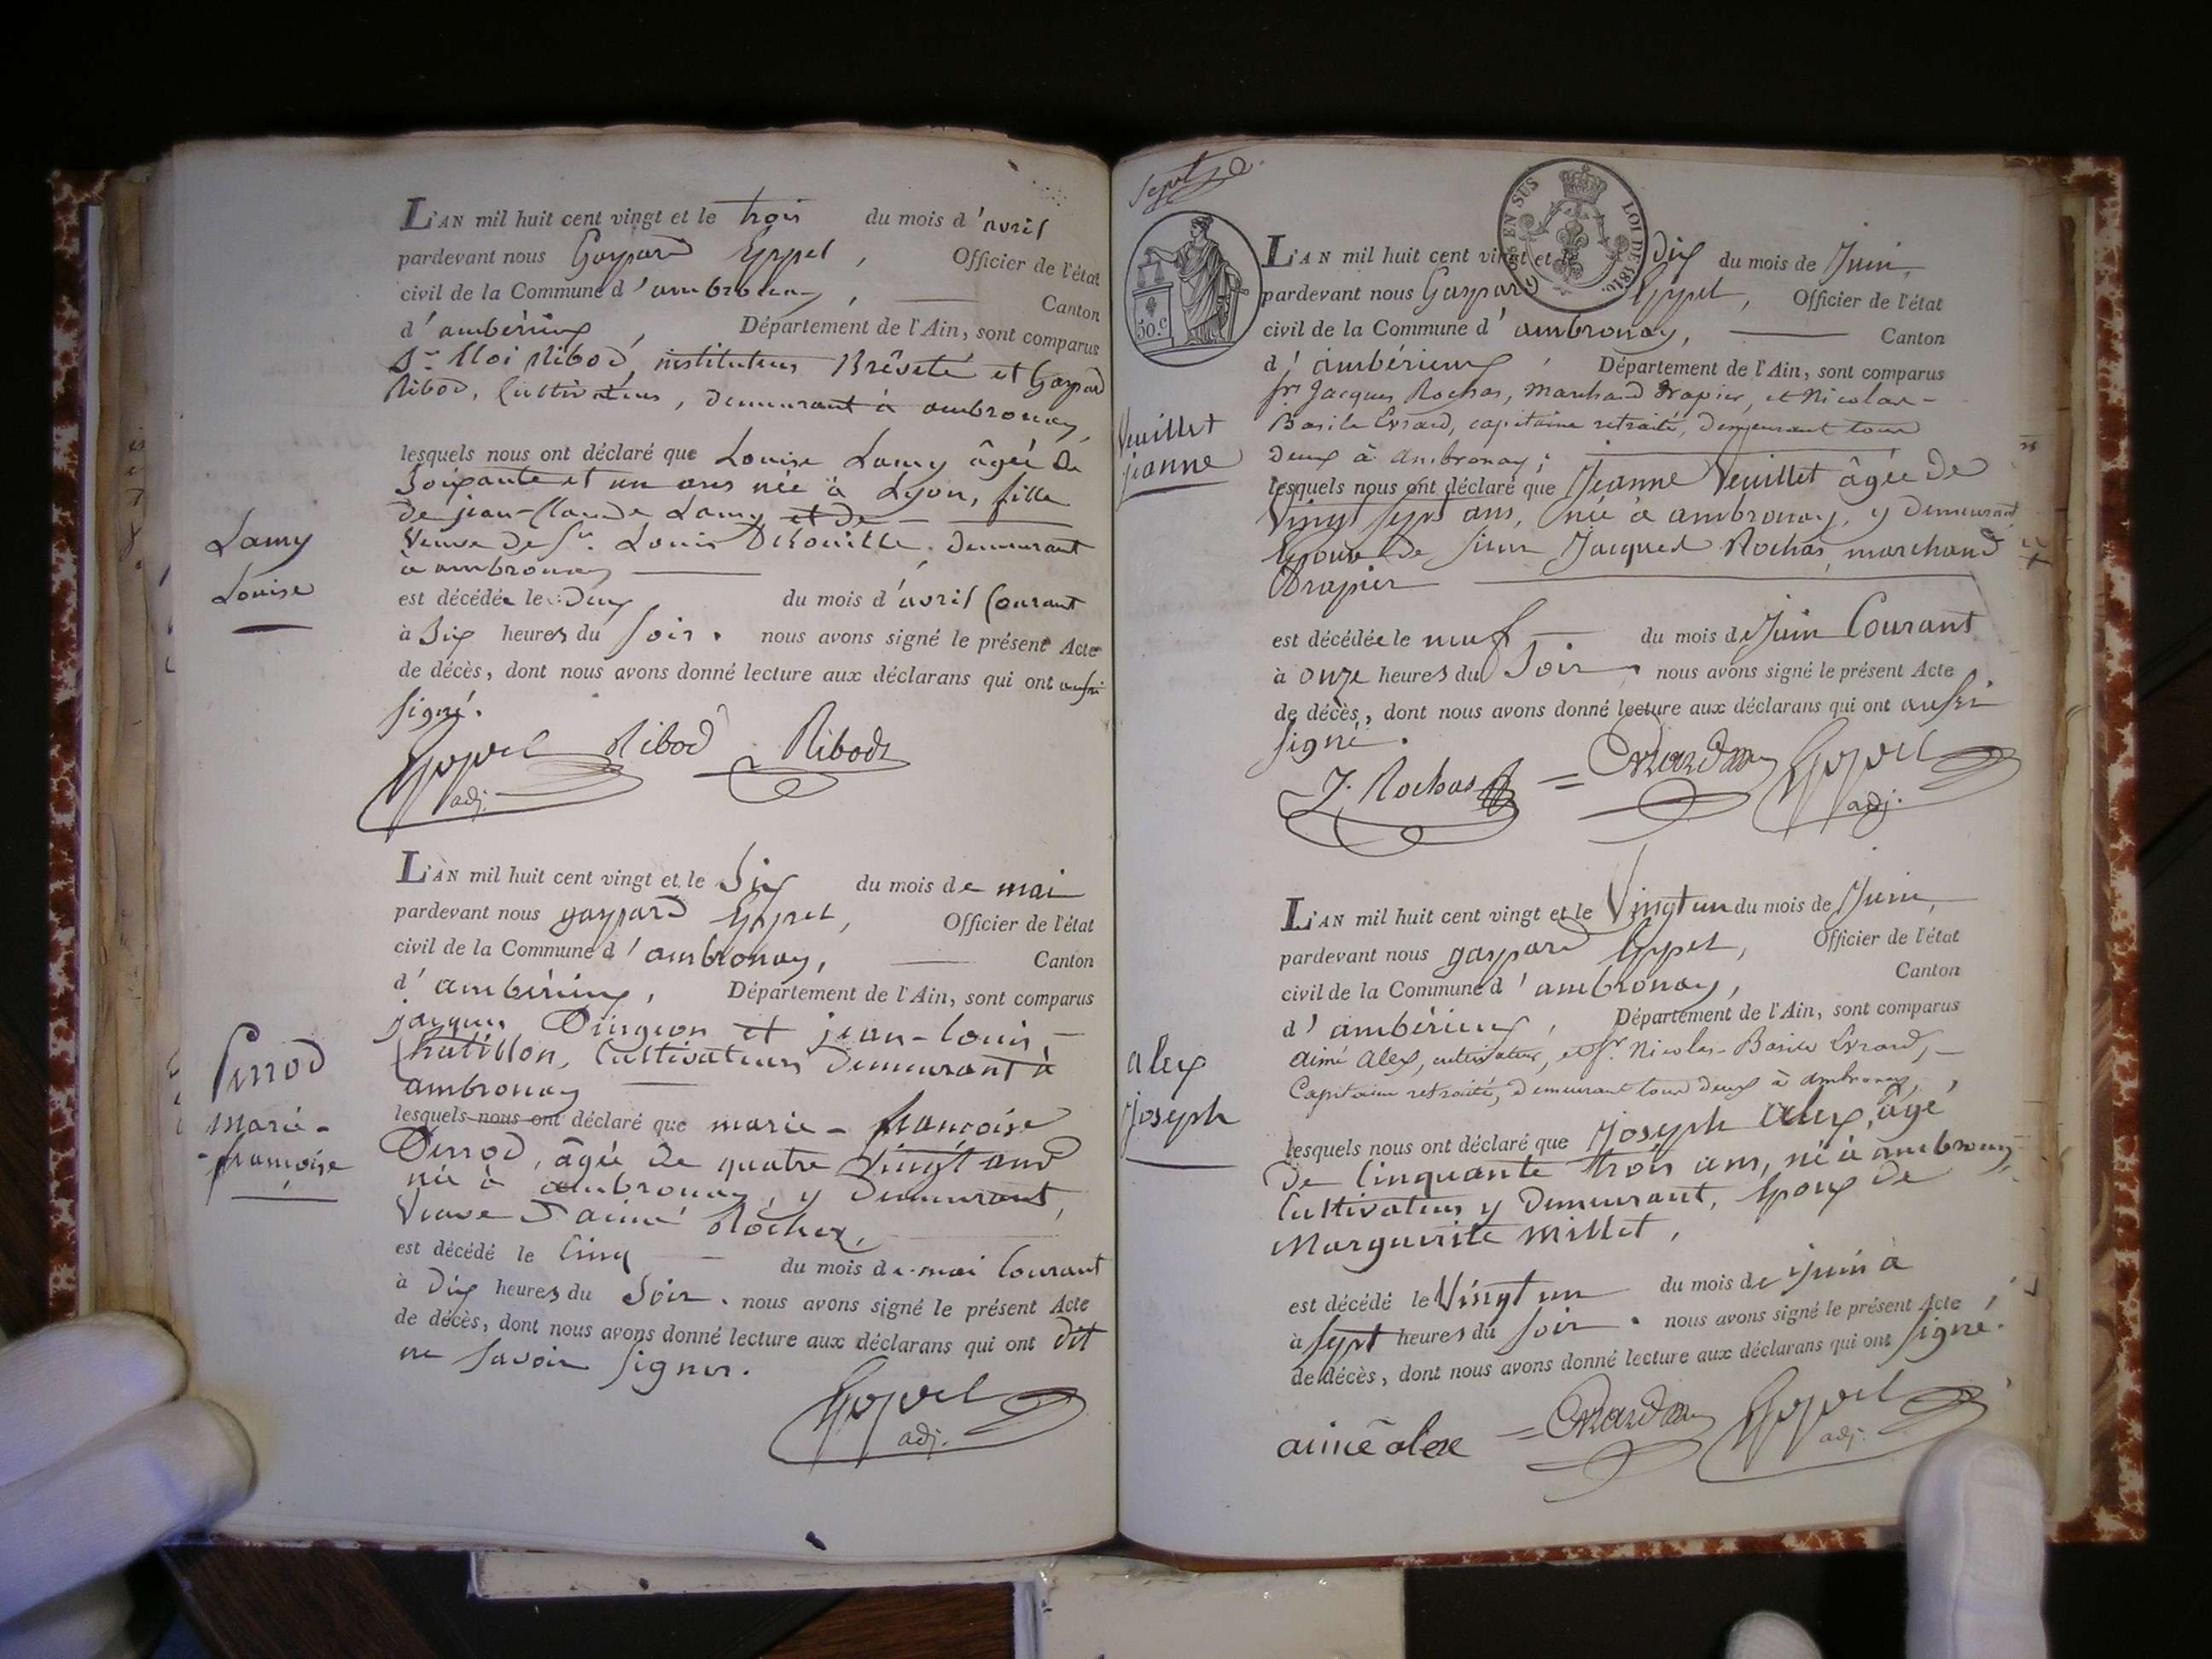 L'AN mil huit cent vingt et le trois du mois d'avril
pardevant nous Gaspard Eppel, Officier de l'état
civil de la Commune d'ambronay, Canton
d'ambérieux, Département de l'Ain, sont comparus
Sr. Eloi Ribod, instituteur Brêveté et Gaspard
Ribod, Cultivateurs, demeurant à ambronay,
lesquels nous ont déclaré que Louise Lamy âgée de
Soixante et un ans née à Lyon, fille
de jean-Claude Lamy et de
Veuve de Sr. Louis demeurant
à ambronay
est décédée le Deux du mois d'avril Courant
à Six heures du Soir. nous avons signé le présent Acte
de décès, dont nous avons donné lecture aux déclarans qui ont aussi
signé.
Lamy
Louise
Eppel Ribod Ribod
adj.
L'AN mil huit cent vingt et le Six du mois de mai
pardevant nous gaspard Eppel, Officier de l'état
civil de la Commune d'ambronay, Canton
d'ambérieux, Département de l'Ain, sont comparus
jacques Dingeon et jean-louis
Chatillon, Cultivateurs Demeurant à
ambronay
lesquels nous ont déclaré que marie-françoise
Perrod, âgée de quatre Vingt ans
née à ambronay, y Demeurant,
Veuve d'aimé Rocher,
est décédé le Cinq du mois de mai Courant
à Dix heures du Soir. nous avons signé le présent Acte
de décès, dont nous avons donné lecture aux déclarans qui ont dit
ne Savoir Signer.
Perrod
Marie-
françoise
Eppel
adj.
sept
GS EN SUS LOI DE 1816.
50.c
L'AN mil huit cent vingt et le Dix du mois de Juin,
pardevant nous Gaspard Eppel, Officier de l'état
civil de la Commune d'ambronay, Canton
d'ambérieux, Département de l'Ain, sont comparus
Sr. Jacques Rochas, Marchand Drapier, et Nicolas-
Basile Evrard, capitaine retraité, demeurant tous
Deux à Ambronay;
lesquels nous ont déclaré que Jeanne Veuillet âgée de
Vingt sept ans, née à ambronay, y demeurant
Epouse de Sieur Jacques Rochas marchand
Drapier
est décédée le neuf du mois de Juin Courant
à onze heures du Soir. nous avons signé le présent Acte
de décès, dont nous avons donné lecture aux déclarans qui ont aussi
signé.
Veuillet
jeanne
J. Rochas Evrard Eppel
adj.
L'AN mil huit cent vingt et le Vingt un du mois de Juin,
pardevant nous gaspard Eppel, Officier de l'état
civil de la Commune d'ambronay, Canton
d'ambérieux, Département de l'Ain, sont comparus
aimé Alex, cultivateur, et Sr. Nicolas-Basile Evrard,
Capitaine retraité, demeurant tous deux à ambronay,
lesquels nous ont déclaré que Joseph Alex, âgé
De Cinquante trois ans, né à ambronay
Cultivateur y Demeurant, Epoux de
Marguerite Millet,
est décédé le Vingt un du mois de juin à
à Sept heures du Soir. nous avons signé le présent Acte
de décès, dont nous avons donné lecture aux déclarans qui ont signé.
alex
joseph
aimé alex Evrard Eppel
adj.